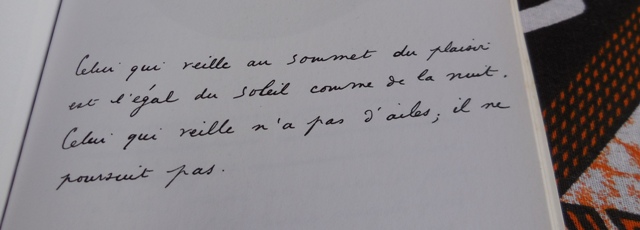 Celui qui veille au sommet du plaisir
est l'égal du soleil comme de la nuit.
Celui qui veille n'a pas d'ailes ; il ne
poursuit pas.